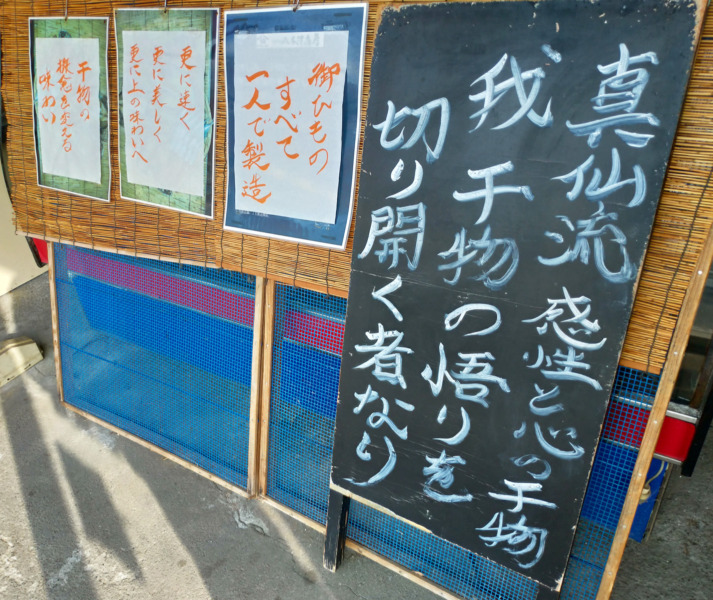 真仙流 感性と心の干物
我 干物の悟りを
切り開く者なり
御ひもの
すべて
一人で製造
更に速く
更に美しく
更に上の味わいへ
干物の
概念を変える
味わい